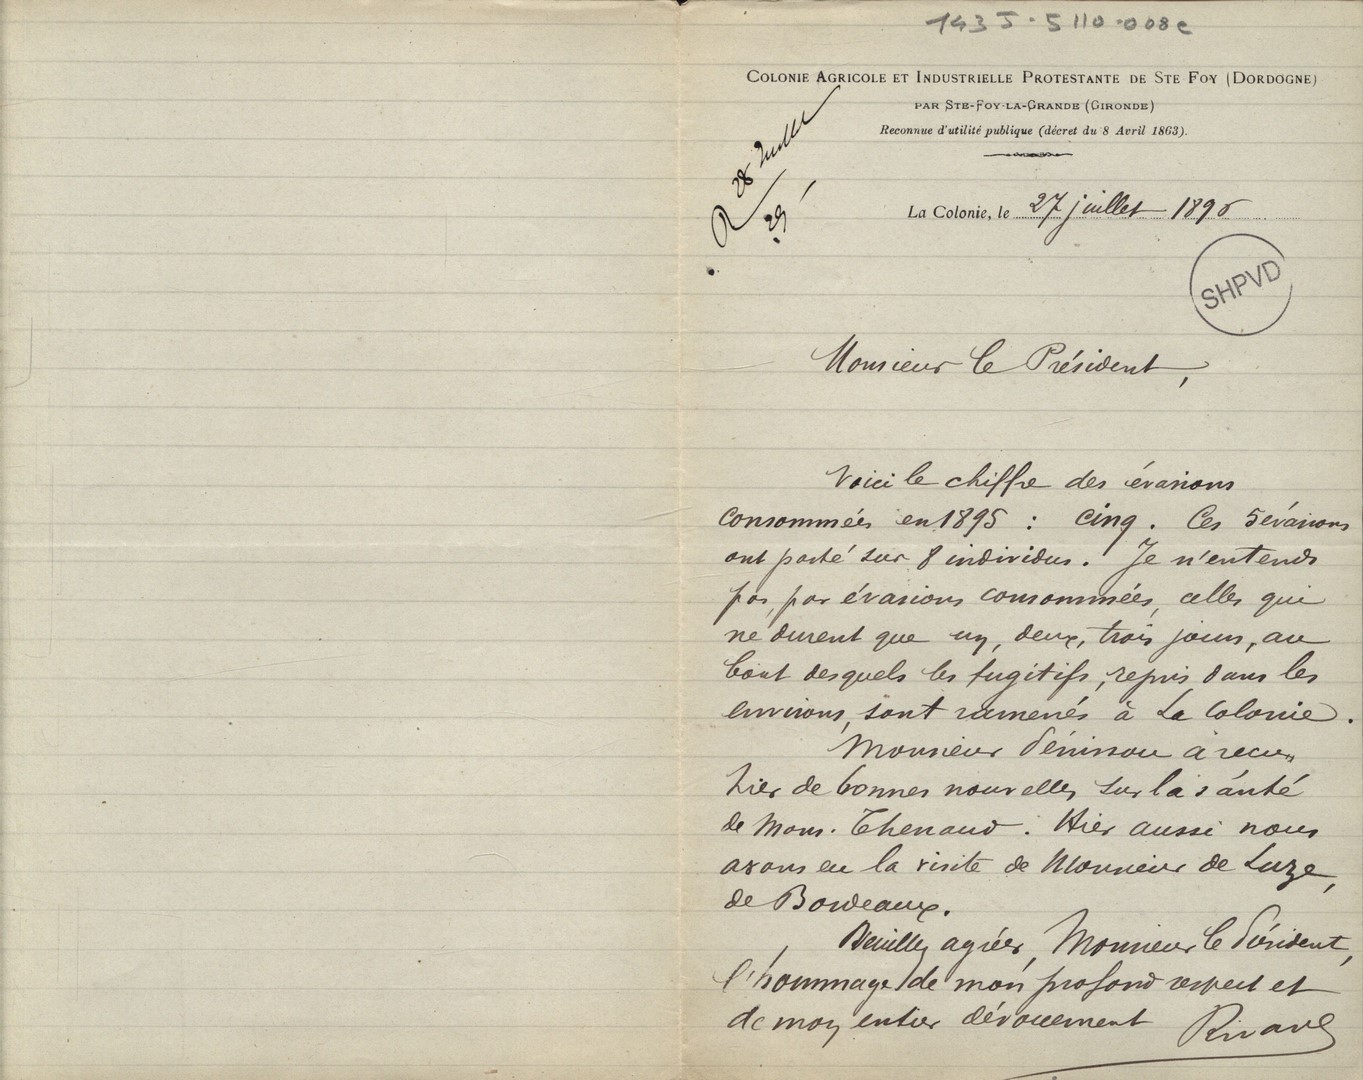 143 J. 5110.008c
COLONIE AGRICOLE ET INDUSTRIELLE PROTESTANTE DE STE FOY (DORDOGNE)
PAR STE-FOY-LA-GRANDE (GIRONDE)
Reconnue d'utilité publique (décret du 8 Avril 1863).
R 28 Juillet
29
La Colonie, le 27 juillet 1896
SHPVD
Monsieur le Président,
Voici le chiffre des évasions
consommées en 1895 : cinq. Ces 5 évasions
ont porté sur 8 individus. Je n'entends
pas, par évasions consommées, celles qui
ne durent que un, deux, trois jours, au
bout desquels les fugitifs, repris dans les
environs, sont ramenés à La Colonie.
Monsieur Pénissou a reçu
hier de bonnes nouvelles sur la santé
de Mons. Thenaud. Hier aussi nous
avons eu la visite de Monsieur de Luze,
de Bordeaux.
Veuillez agréer, Monsieur le Président,
l'hommage de mon profond respect et
de mon entier dévouement